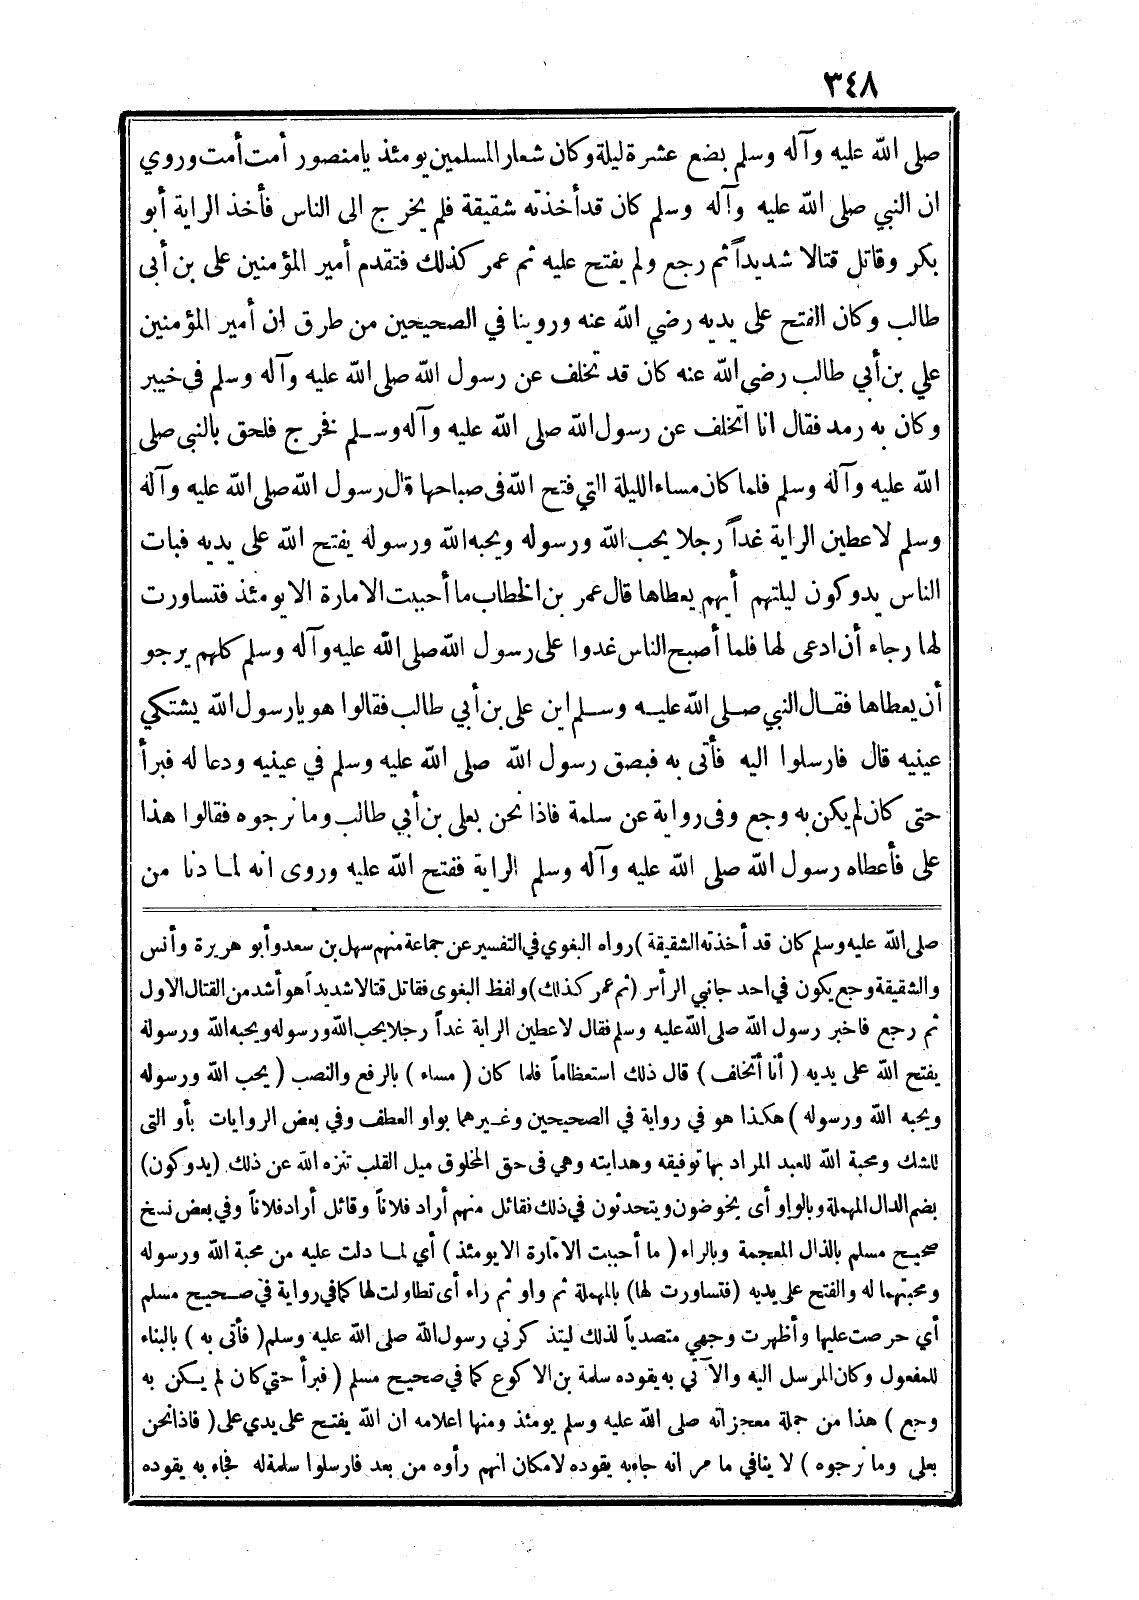 ٣٤٨
صلى الله عليه وآله وسلم بضع عشرة ليلة وكان شعار المسلمين يومئذ يا منصور أمت أمت وروي
ان النبي صلى الله عليه وآله وسلم كان قد أخذته شقيقة فلم يخرج الى الناس فأخذ الراية أبو
بكر وقاتل قتالا شديداً ثم رجع ولم يفتح عليه ثم عمر كذلك فتقدم أمير المؤمنين على بن أبى
طالب وكان الفتح على يديه رضي الله عنه وروينا في الصحيحين من طرق ان أمير المؤمنين
علي بن أبي طالب رضي الله عنه كان قد تخلف عن رسول الله صلى الله عليه وآله وسلم فى خيبر
وكان به رمد فقال انا اتخلف عن رسول الله صلى الله عليه وآله وسلم فخرج فلحق بالنبى صلى
الله عليه وآله وسلم فلما كان مساء الليلة التي فتح الله فى صباحها قال رسول الله صلى الله عليه وآله
وسلم لاعطين الراية غداً رجلا يحب الله ورسوله ويحبه الله ورسوله يفتح الله على يديه فبات
الناس يدوكون ليلتهم أيهم يعطاها قال عمر بن الخطاب ما أحببت الامارة الا يومئذ فتساورت
لها رجاء أن ادعى لها فلما أصبح الناس غدوا على رسول الله صلى الله عليه وآله وسلم كلهم يرجو
أن يعطاها فقال النبي صلى الله عليه وسلم اين على بن أبي طالب فقالوا هو يا رسول الله يشتكي
عينيه قال فارسلوا اليه فأتى به فبصق رسول الله صلى الله عليه وسلم في عينيه ودعا له فبرأ
حتى كان لم يكن به وجع وفى رواية عن سلمة فاذا نحن بعلى بن أبي طالب وما نرجوه فقالوا هذا
على فأعطاه رسول الله صلى الله عليه وآله وسلم الراية ففتح الله عليه وروى انه لما دنا من
صلى الله عليه وسلم كان قد أخذته الشقيقة) رواه البغوي في التفسير عن جماعة منهم سهل بن سعد وأبو هريرة وأنس
والشقيقة وجع يكون في احد جانبي الرأس (ثم عمر كذلك) ولفظ البغوى فقاتل قتالا شديداً هو أشد من القتال الاول
ثم رجع فاخبر رسول الله صلى الله عليه وسلم فقال لاعطين الراية غداً رجلا يحب الله ورسوله ويحبه الله ورسوله
يفتح الله على يديه (أنا أتخلف) قال ذلك استعظاماً فلما كان (مساء) بالرفع والنصب (يحب الله ورسوله
ويحبه الله ورسوله) هكذا هو في رواية في الصحيحين وغيرهما بواو العطف وفي بعض الروايات بأو التى
للشك ومحبة الله للعبد المراد بها توفيقه وهدايته وهي فى حق المخلوق ميل القلب تنزه الله عن ذلك (يدوكون)
بضم الدال المهملة وبالواو أى يخوضون ويتحدثون في ذلك فقائل منهم أراد فلاناً وقائل أراد فلاناً وفي بعض نسخ
صحيح مسلم بالذال المعجمة وبالراء (ما أحببت الامارة الا يومئذ) أي لما دلت عليه من محبة الله ورسوله
ومحبتهما له والفتح على يديه (فتساورت لها) بالمهملة ثم واو ثم راء أى تطاولت لها كما في رواية في صحيح مسلم
أي حرصت عليها وأظهرت وجهي متصدياً لذلك ليتذكرني رسول الله صلى الله عليه وسلم (فأتى به) بالبناء
للمفعول وكان المرسل اليه والآتي به يقوده سلمة بن الاكوع كما في صحيح مسلم (فبرأ حتي كان لم يكن به
وجع) هذا من جملة معجزاته صلى الله عليه وسلم يومئذ ومنها اعلامه ان الله يفتح على يدي على (فاذا نحن
بعلى وما نرجوه) لا ينافي ما مر انه جاء به يقوده لامكان انهم رأوه من بعد فارسلوا سلمة له فجاء به يقوده